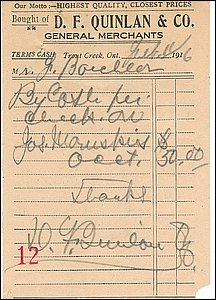 Our Motto:—HIGHEST QUALITY, CLOSEST PRICES
Bought of D. F. QUINLAN & CO.
GENERAL MERCHANTS
TERMS CASH. Trout Creek, Ont. 1916
M
By Cash per
check on
Jos
acct. $30.00
Thanks
D. F. Quinlan & Co.
12